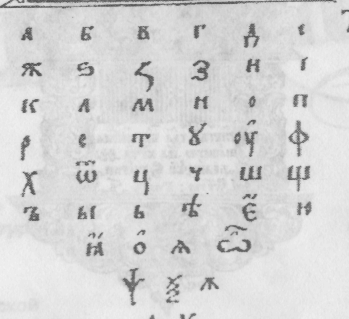 а б в г д є
ж ѕ ꙁ з и і
к л м н о п
р с т ꙋ оу҆ ф
х ѿ ц ч ш щ
ъ ы ь ѣ є҆ ю
ꙗ҆ о҆ ѧ ѡ҆
ѱ ѯ ѫ